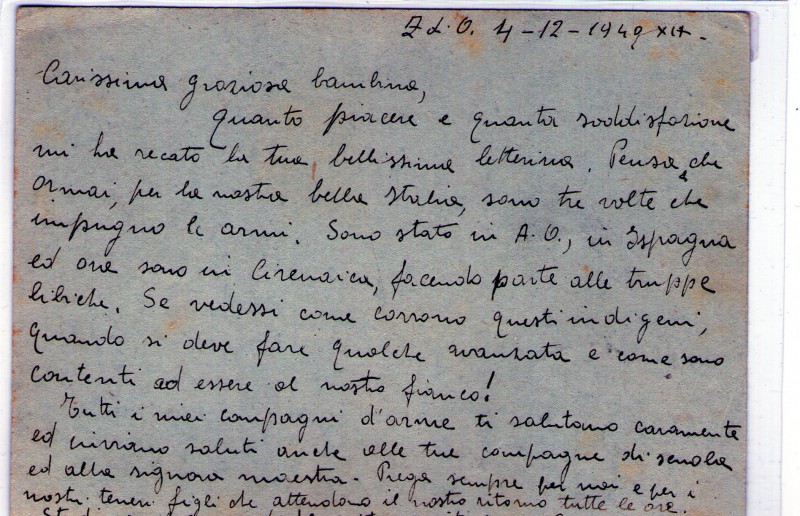 Z d. O. 4-12-1940 XIX.
Carissima graziosa bambina,
Quanto piacere e quanta soddisfazione
mi ha recato la tua bellissima letterina. Pensa, che
ormai, per la nostra bella Italia, sono tre volte che
impugno le armi. Sono stato in A.O., in Ispagna
ed ora sono in Cirenaica, facendo parte alle truppe
libiche. Se vedessi come corrono questi indigeni,
quando si deve fare qualche avanzata e come sono
contenti ad essere al nostro fianco!
Tutti i miei compagni d'arme ti salutano caramente
ed inviano saluti anche alle tue compagne di scuola
ed alla signora maestra. Prega sempre per noi e per i
nostri teneri figli che attendono il nostro ritorno tutte le ore.